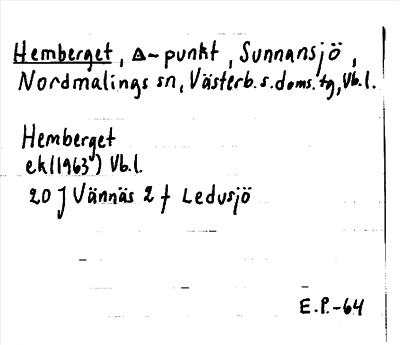 Hemberget, Δ-punkt, Sunnansjö,
Nordmalings sn, Västerb.s.doms.tg, Vb.l.
Hemberget
ek(1963) Vb.l.
20 J Vännäs 2 f Ledusjö
E.P.-64